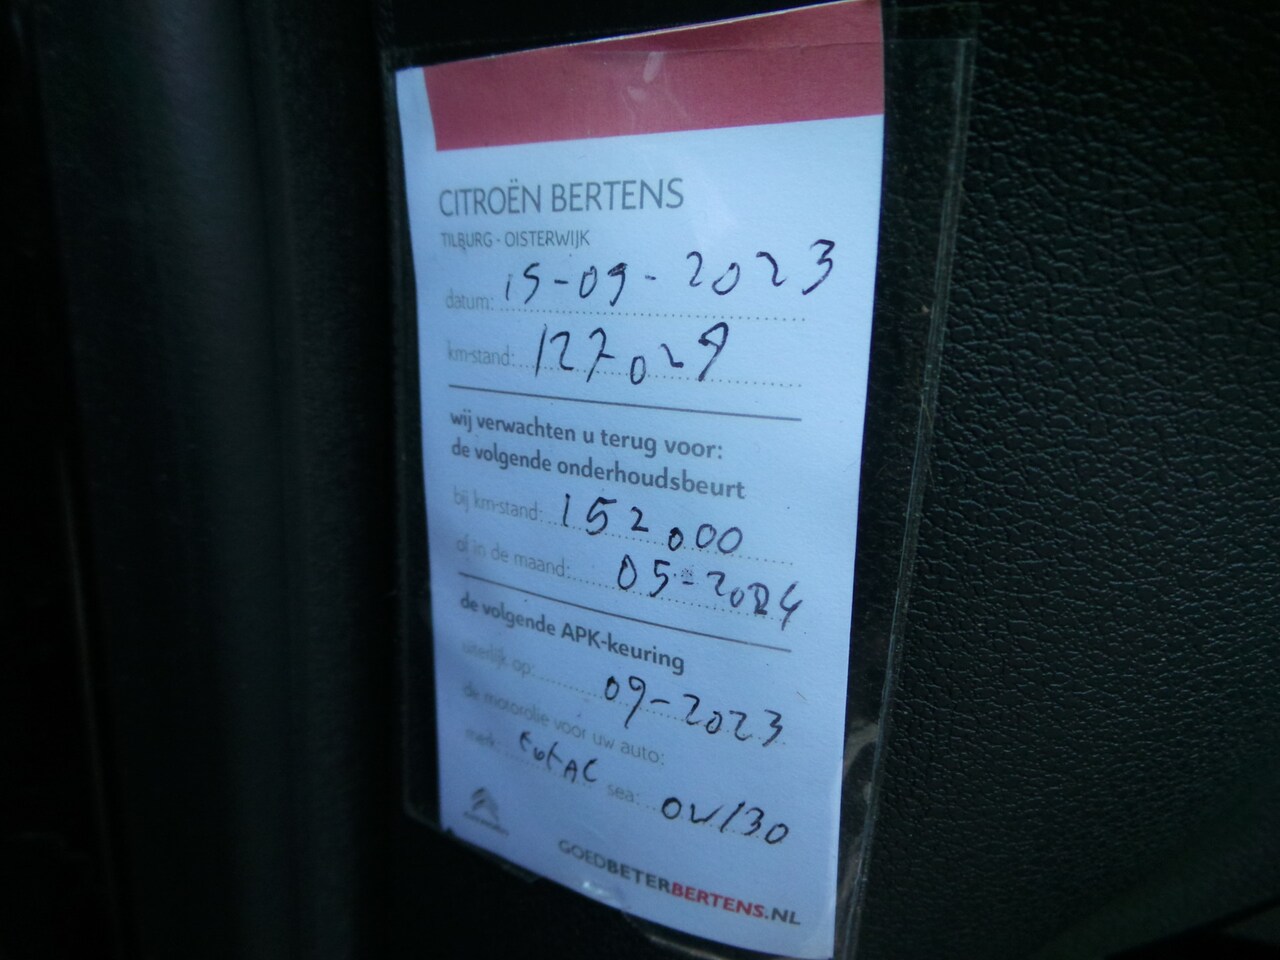 CITROËN BERTENS
TILBURG - OISTERWIJK
datum: 15-09-2023
km-stand: 127029
wij verwachten u terug voor:
de volgende onderhoudsbeurt
bij km-stand: 152000
of in de maand: 05-2024
de volgende APK-keuring
uiterlijk op: 09-2023
de motorolie voor uw auto:
merk: totAL sea: 0W/30
GOEDBETERBERTENS.NL